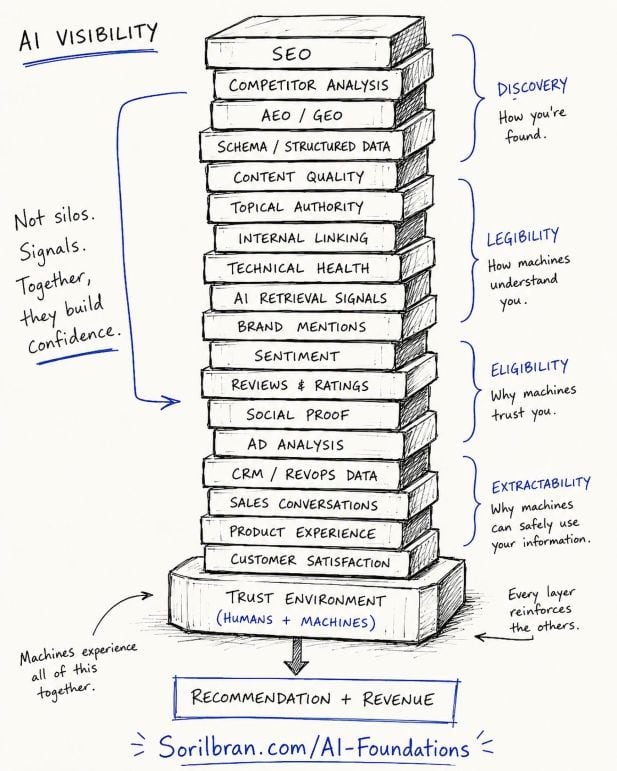 AI VISIBILITY
SEO
COMPETITOR ANALYSIS
AEO / GEO
SCHEMA / STRUCTURED DATA
CONTENT QUALITY
TOPICAL AUTHORITY
INTERNAL LINKING
TECHNICAL HEALTH
AI RETRIEVAL SIGNALS
BRAND MENTIONS
SENTIMENT
REVIEWS & RATINGS
SOCIAL PROOF
AD ANALYSIS
CRM / REVOPS DATA
SALES CONVERSATIONS
PRODUCT EXPERIENCE
CUSTOMER SATISFACTION
TRUST ENVIRONMENT
(HUMANS + MACHINES)
DISCOVERY
How you're
found.
LEGIBILITY
How machines
understand
you.
ELIGIBILITY
Why machines
trust you.
EXTRACTABILITY
Why machines
can safely use
your information.
Not silos.
Signals.
Together,
they build
confidence.
Machines experience
all of this
together.
Every layer
reinforces
the others.
RECOMMENDATION + REVENUE
Sorilbran.com/AI-Foundations